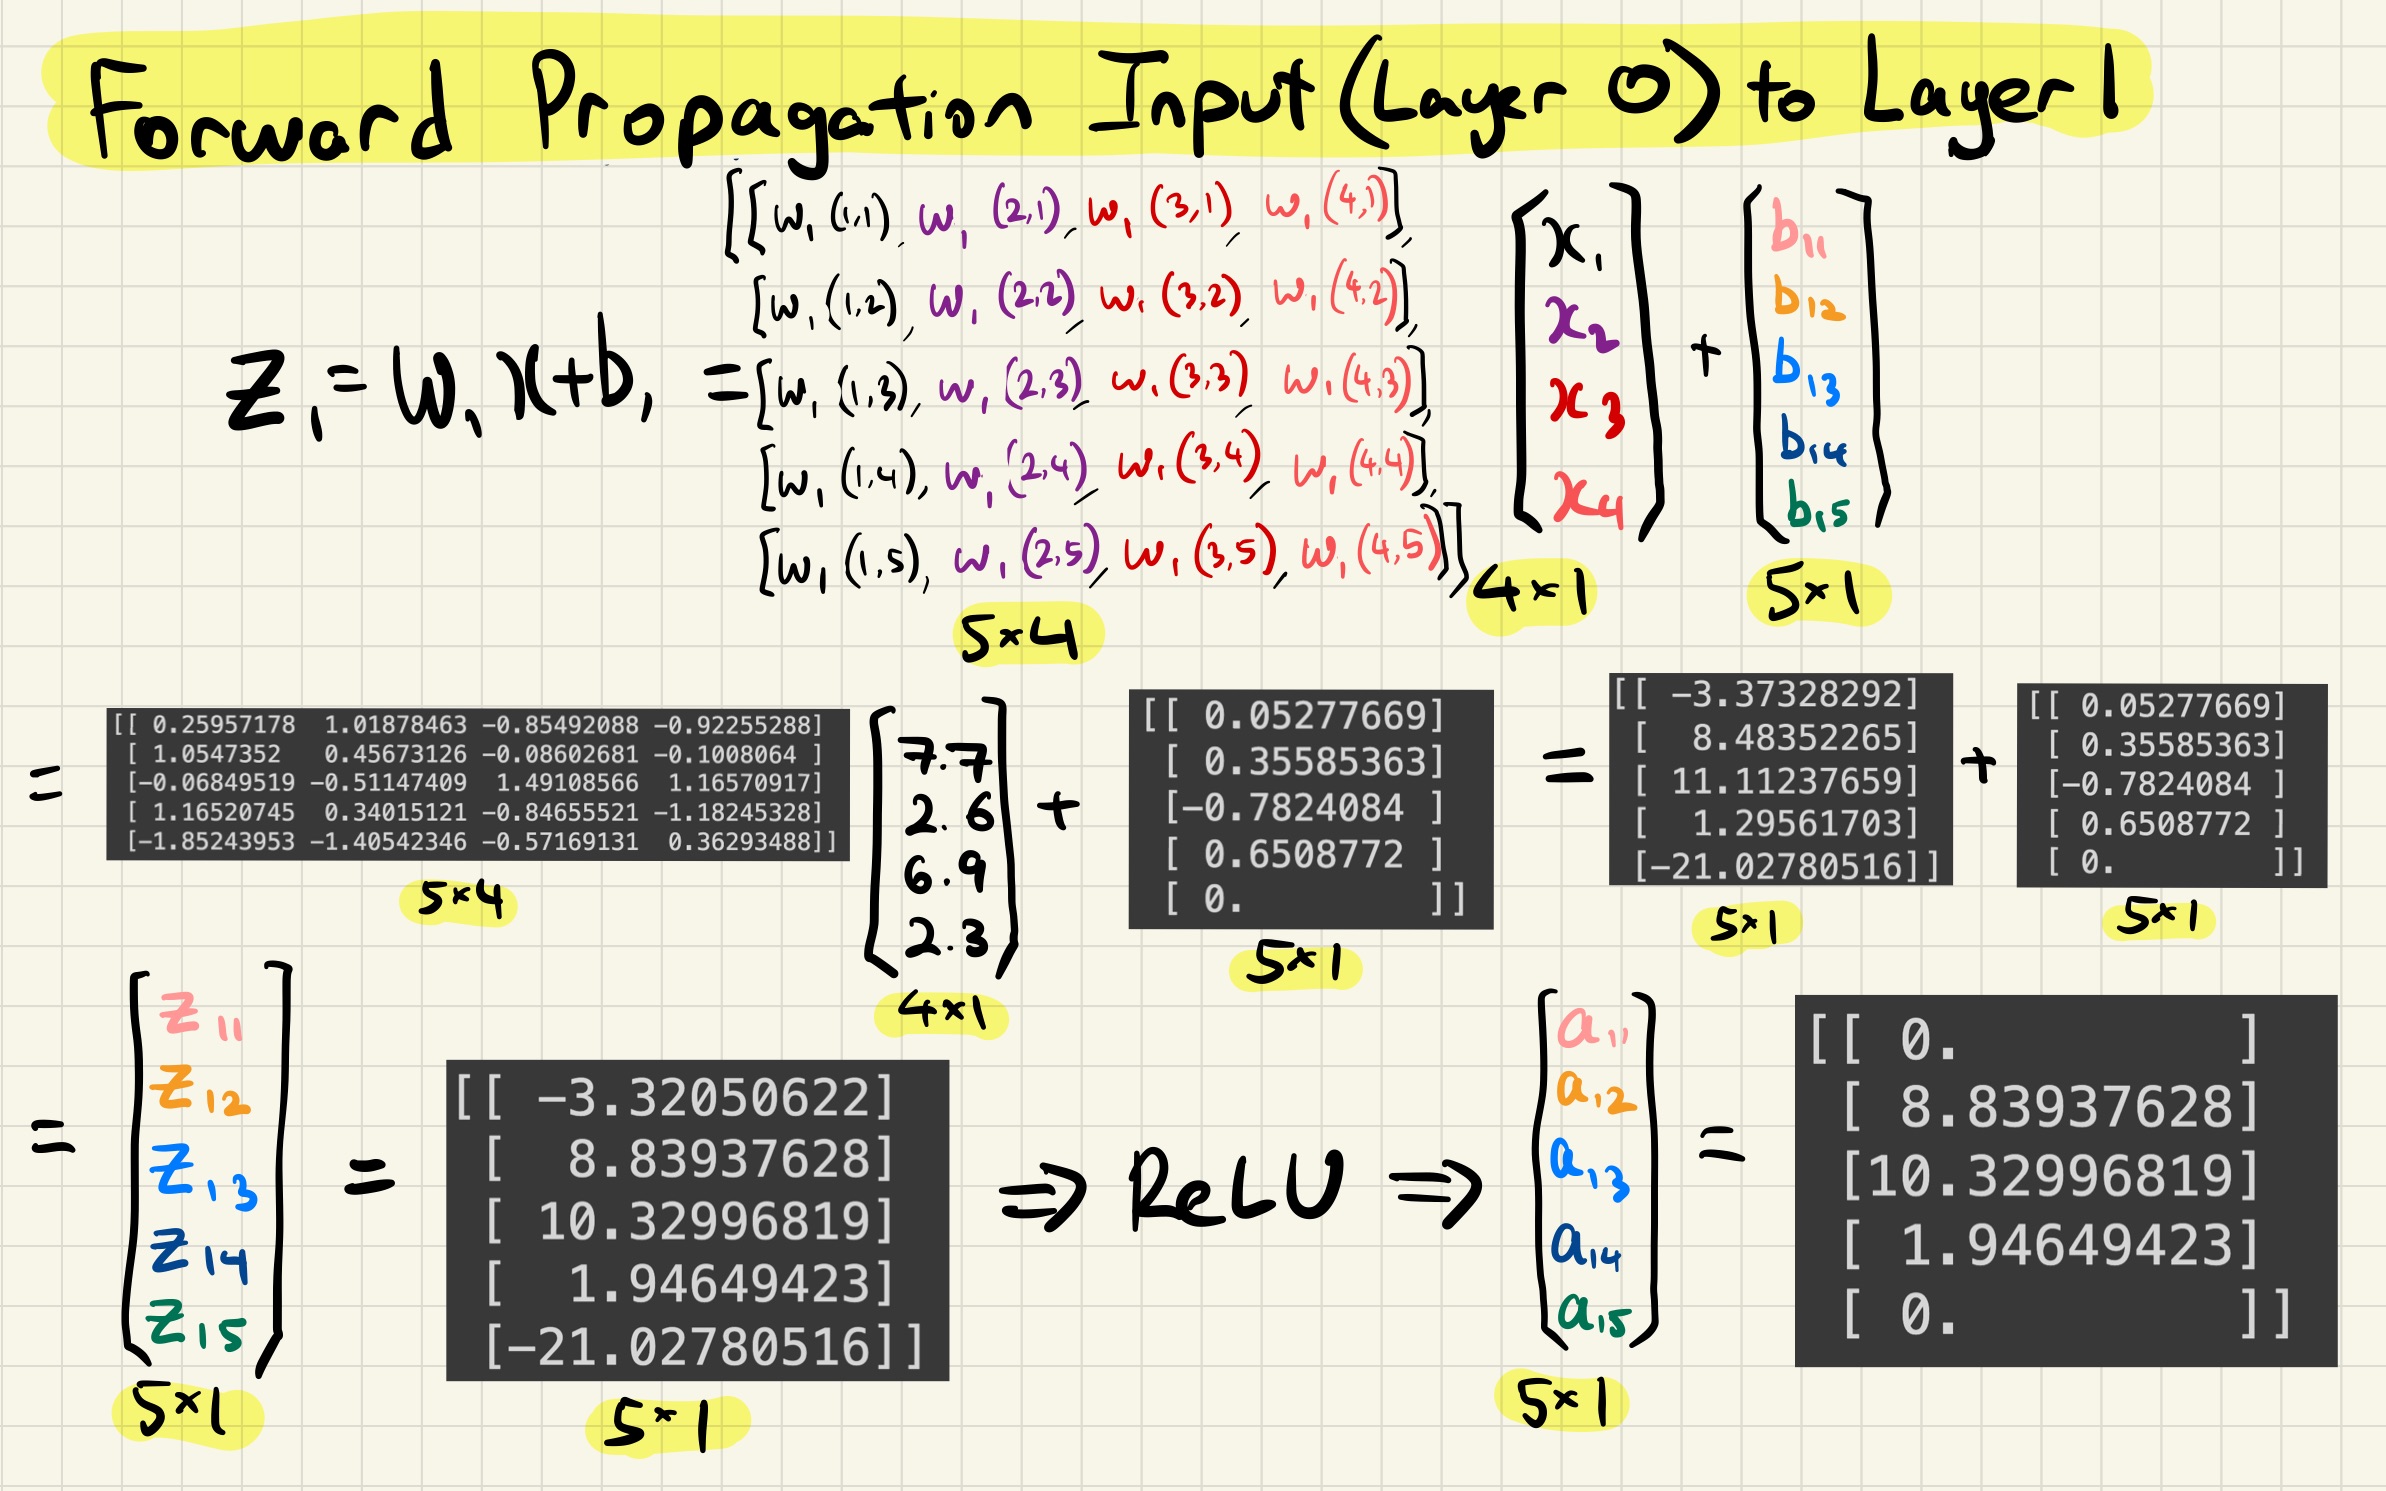 Forward Propagation Input (Layer 0) to Layer 1
[[w₁ (1,1), w₁ (2,1), w₁ (3,1) , w₁ (4,1)],
[w₁ (1,2), w₁ (2,2), w₁ (3,2), w₁ (4,2)],
[w₁ (1,3), w₁ (2,3), w₁ (3,3), w₁ (4,3)],
[w₁ (1,4), w₁ (2,4), w₁ (3,4), w₁ (4,4)],
[w₁ (1,5), w₁ (2,5), w₁ (3,5), w₁ (4,5)]]
z₁ = W₁ x + b₁ =
x₁
x₂
x₃
x₄
+
b₁₁
b₁₂
b₁₃
b₁₄
b₁₅
5×4
4×1
5×1
=
[[ 0.25957178 1.01878463 −0.85492088 −0.92255288]
[ 1.0547352 0.45673126 −0.08602681 −0.1008064 ]
[−0.06849519 −0.51147409 1.49108566 1.16570917]
[ 1.16520745 0.34015121 −0.84655521 −1.18245328]
[−1.85243953 −1.40542346 −0.57169131 0.36293488]]
5×4
7.7
2.6
6.9
2.3
4×1
+
[[ 0.05277669]
[ 0.35585363]
[−0.7824084 ]
[ 0.6508772 ]
[ 0. ]]
5×1
=
[[ −3.37328292]
[ 8.48352265]
[ 11.11237659]
[ 1.29561703]
[−21.02780516]]
5×1
+
[[ 0.05277669]
[ 0.35585363]
[−0.7824084 ]
[ 0.6508772 ]
[ 0. ]]
5×1
=
z₁₁
z₁₂
z₁₃
z₁₄
z₁₅
5×1
=
[[ −3.32050622]
[ 8.83937628]
[ 10.32996819]
[ 1.94649423]
[−21.02780516]]
5×1
⇒ ReLU ⇒
a₁₁
a₁₂
a₁₃
a₁₄
a₁₅
5×1
=
[[ 0. ]
[ 8.83937628]
[10.32996819]
[ 1.94649423]
[ 0. ]]